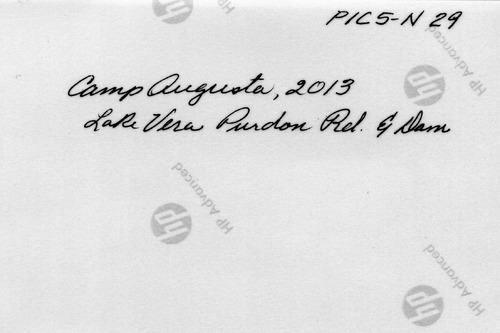 PIC5-N 29
Camp Augusta, 2013
Lake Vera Purdon Rd. & Dam
hp HP Advanced
hp HP Advanced
hp HP Advanced
hp HP Advanced